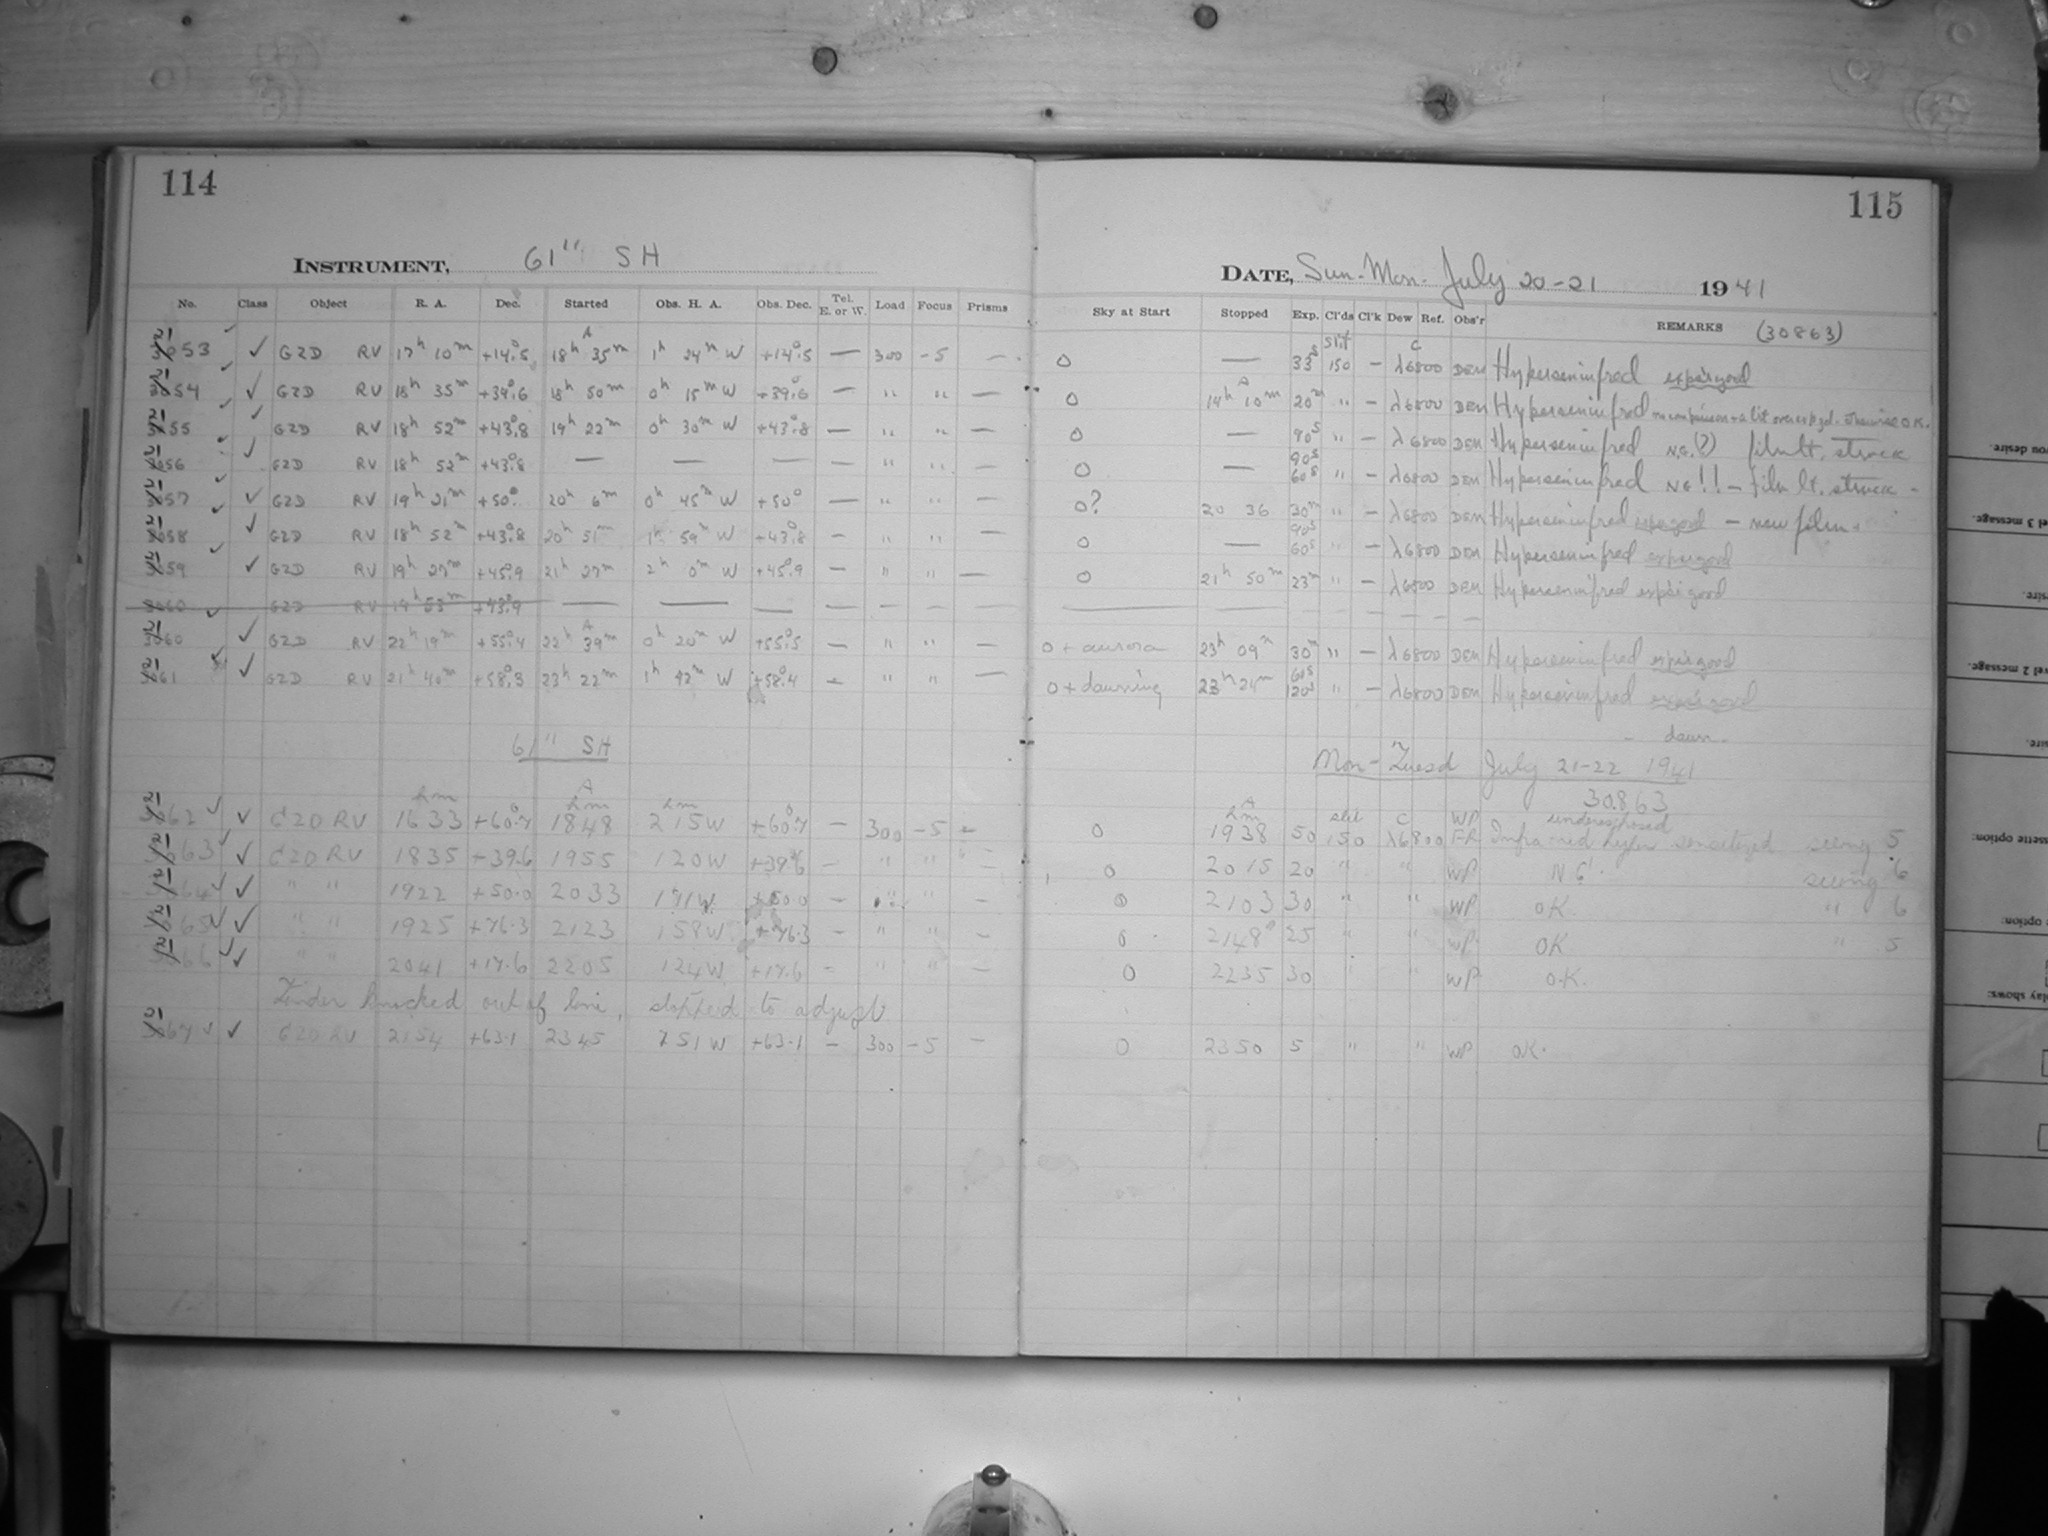 114
INSTRUMENT, 61" SH
No. Class Object R. A. Dec. Started Obs. H. A. Obs. Dec. Tel. E. or W. Load Focus Prisms
2153 ✓ G2D RV 17h 10m +14°.5 18h 35m A 1h 24m W +14°.5 — 300 -5 —
2154 ✓ G2D RV 18h 35m +39°.6 18h 50m 0h 15m W +39°.6 — " " —
2155 ✓ G2D RV 18h 52m +43°.8 19h 22m 0h 30m W +43°.8 — " " —
2156 ✓ G2D RV 18h 52m +43°.8 — — — — " " —
2157 ✓ G2D RV 19h 21m +50° 20h 6m 0h 45m W +50° — " " —
2158 ✓ G2D RV 18h 52m +43°.8 20h 51m 1h 59m W +43°.8 — " " —
2159 ✓ G2D RV 19h 27m +45°.9 21h 27m 2h 0m W +45°.9 — " " —
G2D RV 19h 53m +43°.9 — — — — — — —
2160 ✓ G2D RV 22h 19m +55°.4 22h 39m A 0h 20m W +55°.5 — " " —
2161 ✓ G2D RV 21h 40m +58°.3 23h 22m 1h 42m W +58°.4 — " " —
61" SH
hm A hm hm
2162 ✓ G2D RV 1633 +60°.7 1848 215W +60°.7 — 300 -5 —
2163 ✓ G2D RV 1835 +39.6 1955 120W +39.6 — " " —
2164 ✓ " " 1922 +50.0 2033 1 11W +50.0 — " " —
2165 ✓ " " 1925 +76.3 2123 158W +76.3 — " " —
2166 ✓ " " 2041 +17.6 2205 124W +17.6 — " " —
Finder knocked out of line, stopped to adjust
2167 ✓ G2D RV 2154 +63.1 2345 1 51 W +63.1 — 300 -5 —
115
DATE, Sun-Mon- July 20-21 1941
Sky at Start Stopped Exp. Cl'ds Cl'k Dew Ref. Obs'r REMARKS (30863)
slit c
0 — 33s 150 — λ6800 DEM Hypersen infred exp is good
0 19h 10m A 20m " — λ6800 DEM Hypersen infred otherwise O.K.
0 — 90s " — λ6800 DEM Hypersen infred N.G.(?) film lt. struck
0 — 90s 60s " — λ6800 DEM Hypersen infred NG!! — film lt. struck -
0? 20 36 30m " — λ6800 DEM Hypersen infred exp good — new film
0 — 90s 60s " — λ6800 DEM Hypersen infred exp good
0 21h 50m 23m " — λ6800 DEM Hypersen infred exp is good
0 + aurora 23h 09m 30m " — λ6800 DEM Hypersen infred exp is good
0 + dawning 23h 24m 60s 120s " — λ6800 DEM Hypersen infred exp is good
- dawn -
Mon-Tuesd July 21-22 1941
30863
A hm slit c WP underexposed
0 1938 50 150 λ6800 FR Infra red hyper sensitized seeing 5
0 2015 20 " " WP NG! seeing 6
0 2103 30 " " WP OK " 6
0 2148 25 " " WP OK " 5
0 2235 30 " " WP O.K.
0 2350 5 " " WP OK.